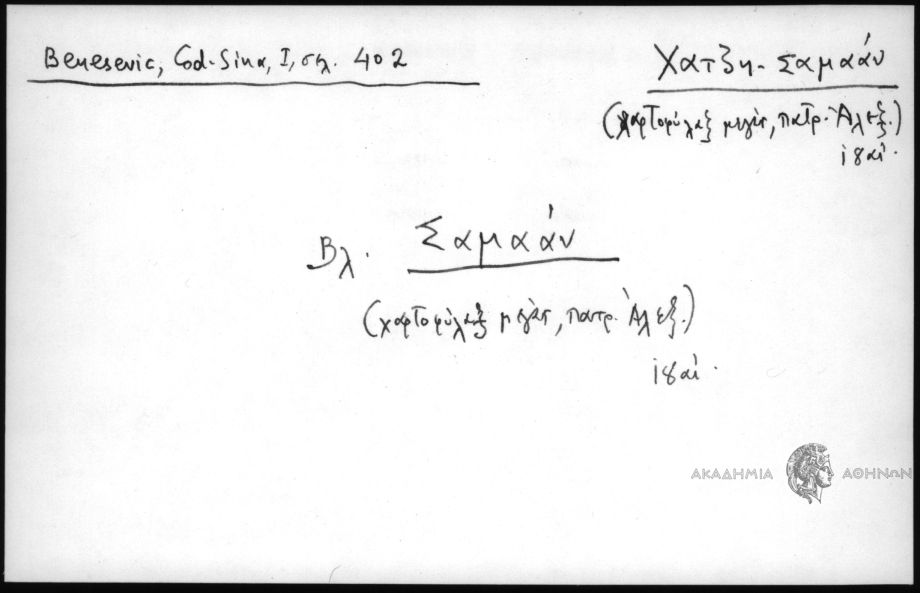 Benesevic, Cod. Sina, I, σελ. 402
Χατζη-Σαμαάν
(χαρτοφύλαξ μέγας, πατρ. Ἀλεξ.)
ιηαί.
Βλ. Σαμαάν
(χαρτοφύλαξ μέγας, πατρ. Ἀλεξ.)
ιηαί.
ΑΚΑΔΗΜΙΑ ΑΘΗΝΩΝ